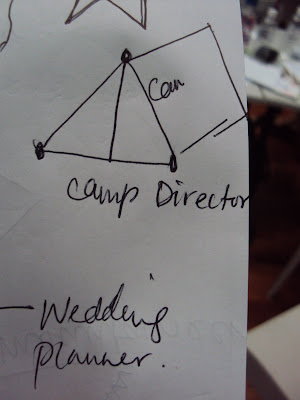 Can
Camp Director
Wedding
planner.